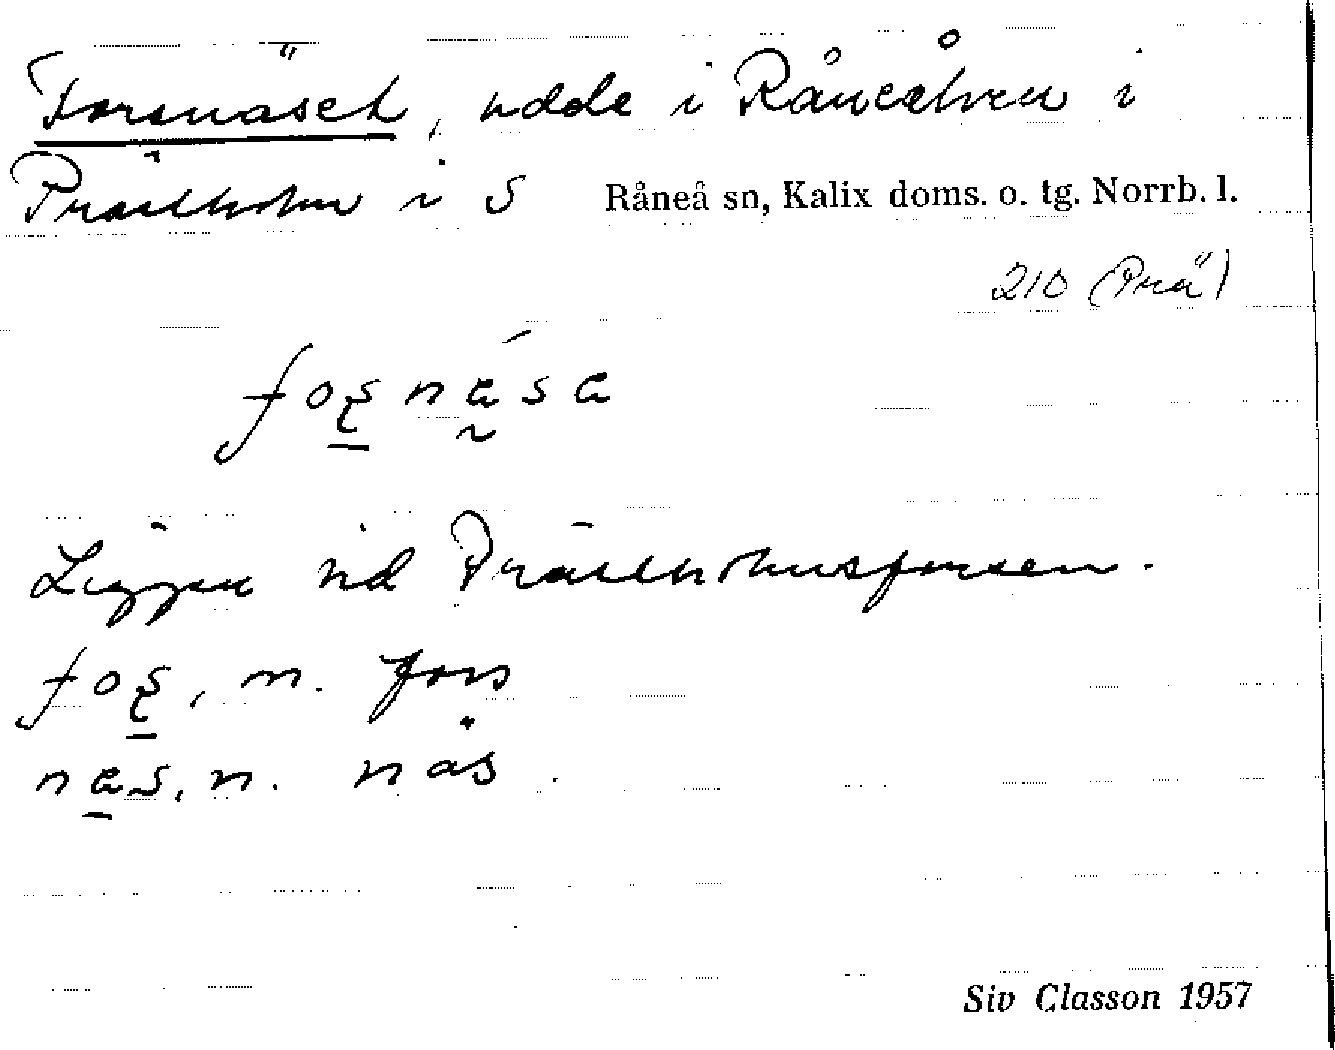 Forsnäset, udde i Råneälven i
Prästholm i S Råneå sn, Kalix doms. o. tg. Norrb. l.
210 (Prä)
Ligger vid Prästholmsforsen.
n. fors
n. näs
Siv Classon 1957